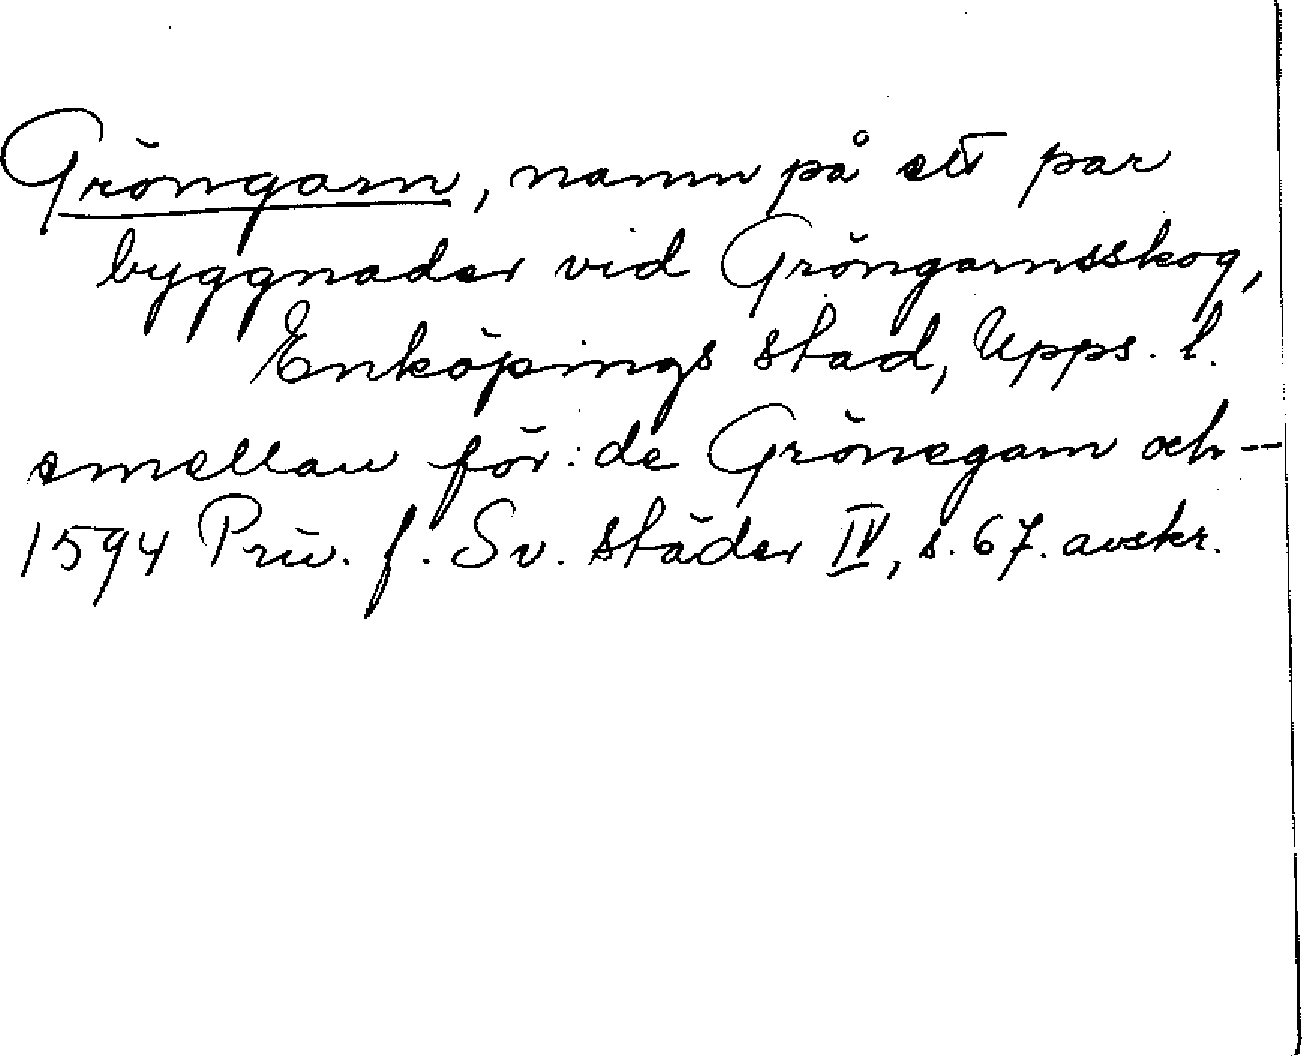 Gröngarn, namn på ett par
byggnader vid Gröngarnsskog,
Enköpings stad, Upps. l.
emellan för: de Grönegarn och --
1594 Priv. f. Sv. städer IV, s. 67. avskr.